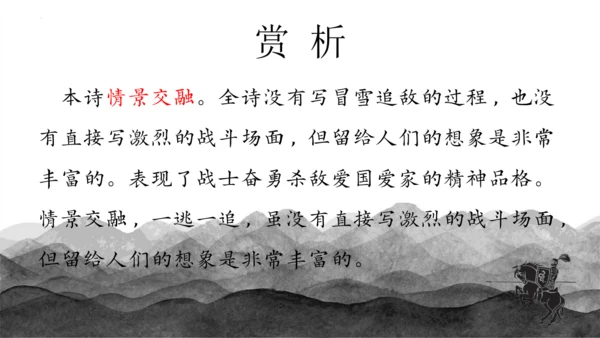 赏析
本诗情景交融。全诗没有写冒雪追敌的过程，也没
有直接写激烈的战斗场面，但留给人们的想象是非常
丰富的。表现了战士奋勇杀敌爱国爱家的精神品格。
情景交融，一逃一追，虽没有直接写激烈的战斗场面，
但留给人们的想象是非常丰富的。